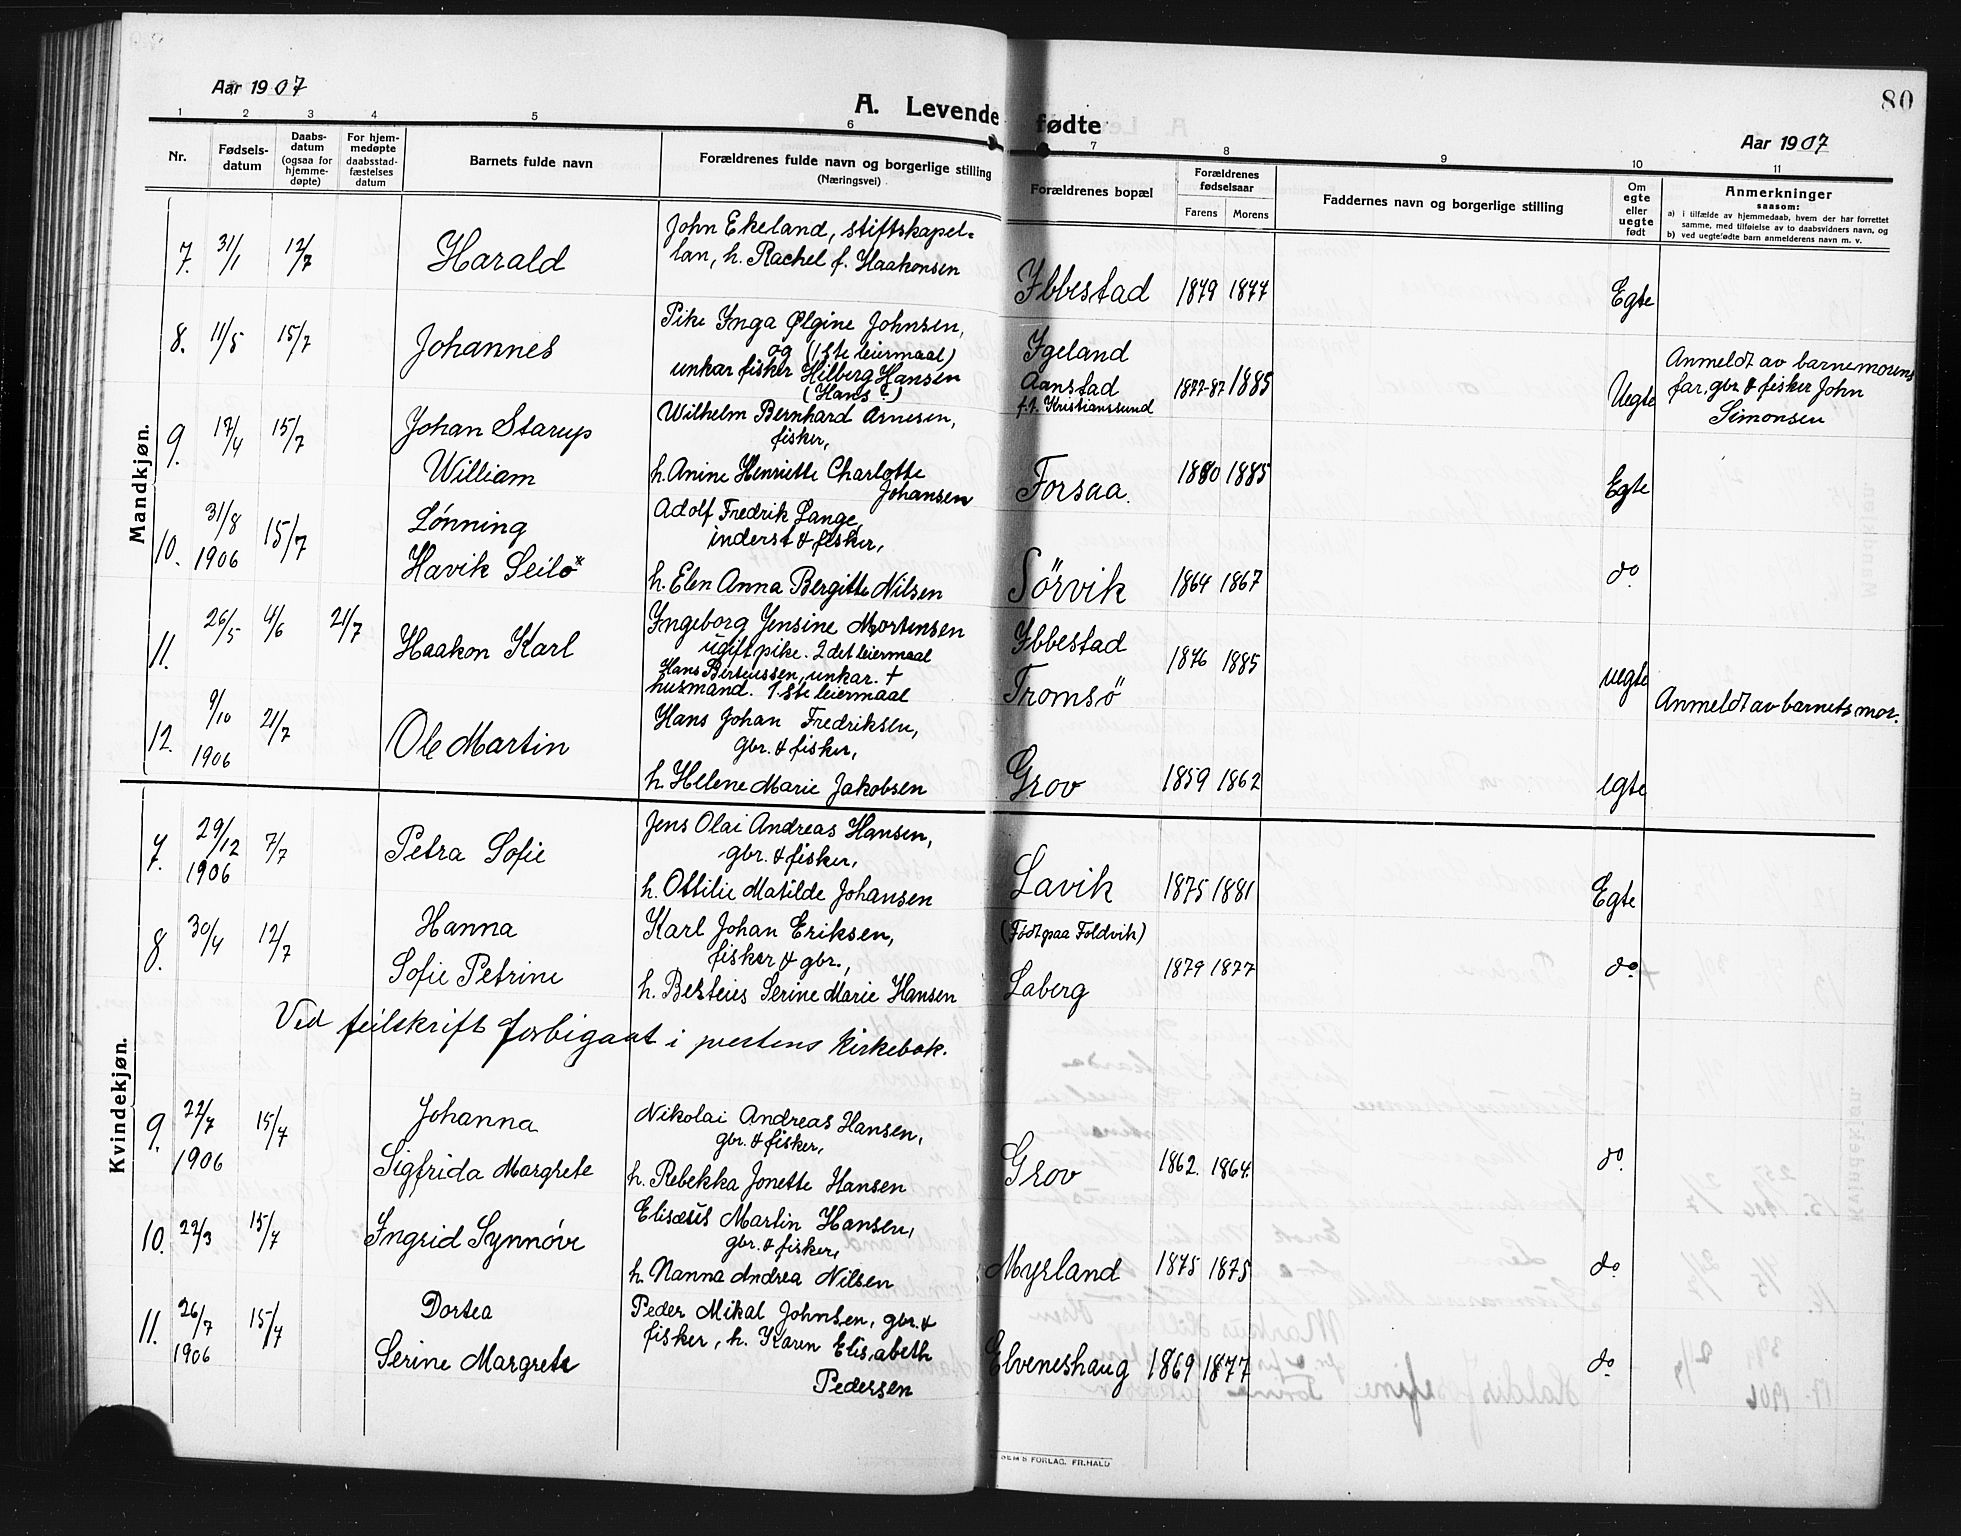 Aar 1907
A. Levende fødte
80
Aar 1907
1 2 3 4 5 6 7 8 9 10 11
Nr.
Fødsels-
datum
Daabs-
datum
(ogsaa for
hjemme-
døpte)
For hjem-
medøpte
daabsstad-
fæstelses
datum
Barnets fulde navn
Forældrenes fulde navn og borgerlige stilling
(Næringsvei)
Forældrenes bopæl
Forældrenes
fødselsaar
Farens Morens
Faddernes navn og borgerlige stilling
Om
egte
eller
uegte
født
Anmerkninger
saasom:
a) i tilfælde av hjemmedaab, hvem der har forrettet
samme, med tilføielse av to daabsvidners navn, og
b) ved uegtefødte barn anmelderens navn m. v.
Mandkjøn.
7. 31/1 12/7 Harald
John Ekeland, stiftskapel-
lan, h. Rachel f. Haakonsen
Ibbestad 1879 1877 Egte
8. 11/5 15/7 Johannes
Pike Inga Ølgine Johnsen,
og (1ste leiermaal)
unkar fisker Hilberg Hansen
(Hans?)
Igeland
Aanstad
f.t. Kristianssund
1877-87 1885 Uegte
Anmeldt av barnemorens
far, gbr. & fisker John
Simonsen
9. 17/4 15/7 Johan Starup
William
Wilhelm Bernhard Arnesen,
fisker,
h. Anine Henriette Charlotte
Johansen
Forsaa. 1880 1885 Egte
10. 31/8
1906 15/7 Lønning
Havik Seilo*
Adolf Fredrik Lange,
inderst & fisker,
h. Elen Anna Bergitte Nilsen
Sörvik 1864 1867 do.
11. 26/5 4/6 21/7 Haakon Karl
Ingeborg Jensine Mortensen
ugift pike. 2det leiermaal
Hans Berteussen, unkar. +
husmand. 1ste leiermaal
Ibbestad
Tromsö
1876 1885 uegte
Anmeldt av barnets mor.
12. 9/10
1906 21/7 Ole Martin
Hans Johan Fredriksen,
gbr. & fisker,
h. Helene Marie Jakobsen
Grov 1859 1862 egte
Kvindekjøn.
7. 29/12
1906 7/7 Petra Sofie
Jens Olai Andreas Hansen,
gbr. & fisker,
h. Ottilie Matilde Johansen
Lavik 1875 1881 Egte
8. 30/4 12/7 Hanna
Sofie Petrine
Karl Johan Eriksen,
fisker & gbr.,
h. Besteies Serine Marie Hansen
(Født paa Foldvik)
Laberg 1879 1877 do.
Ved feilskrift forbigaat i prestens kirkebok.
9. 22/7
1906 15/7 Johanna
Sigfrida Margrete
Nikolai Andreas Hansen,
gbr. & fisker,
h. Rebekka Jonette Hansen
Grov 1862. 1864. do.
10. 22/3 15/7 Ingrid Synnöve
Elisæus Martin Hansen,
gbr. & fisker,
h. Nanna Andrea Nilsen
Myrland 1875 1875 do.
11. 26/7
1906 15/7 Dortea
Serine Margrete
Peder Mikal Johnsen, gbr. &
fisker, h. Karen Elisabeth
Pedersen
Elveneshaug 1869 1877 do.
SEM'S FORLAG. FR.HALD